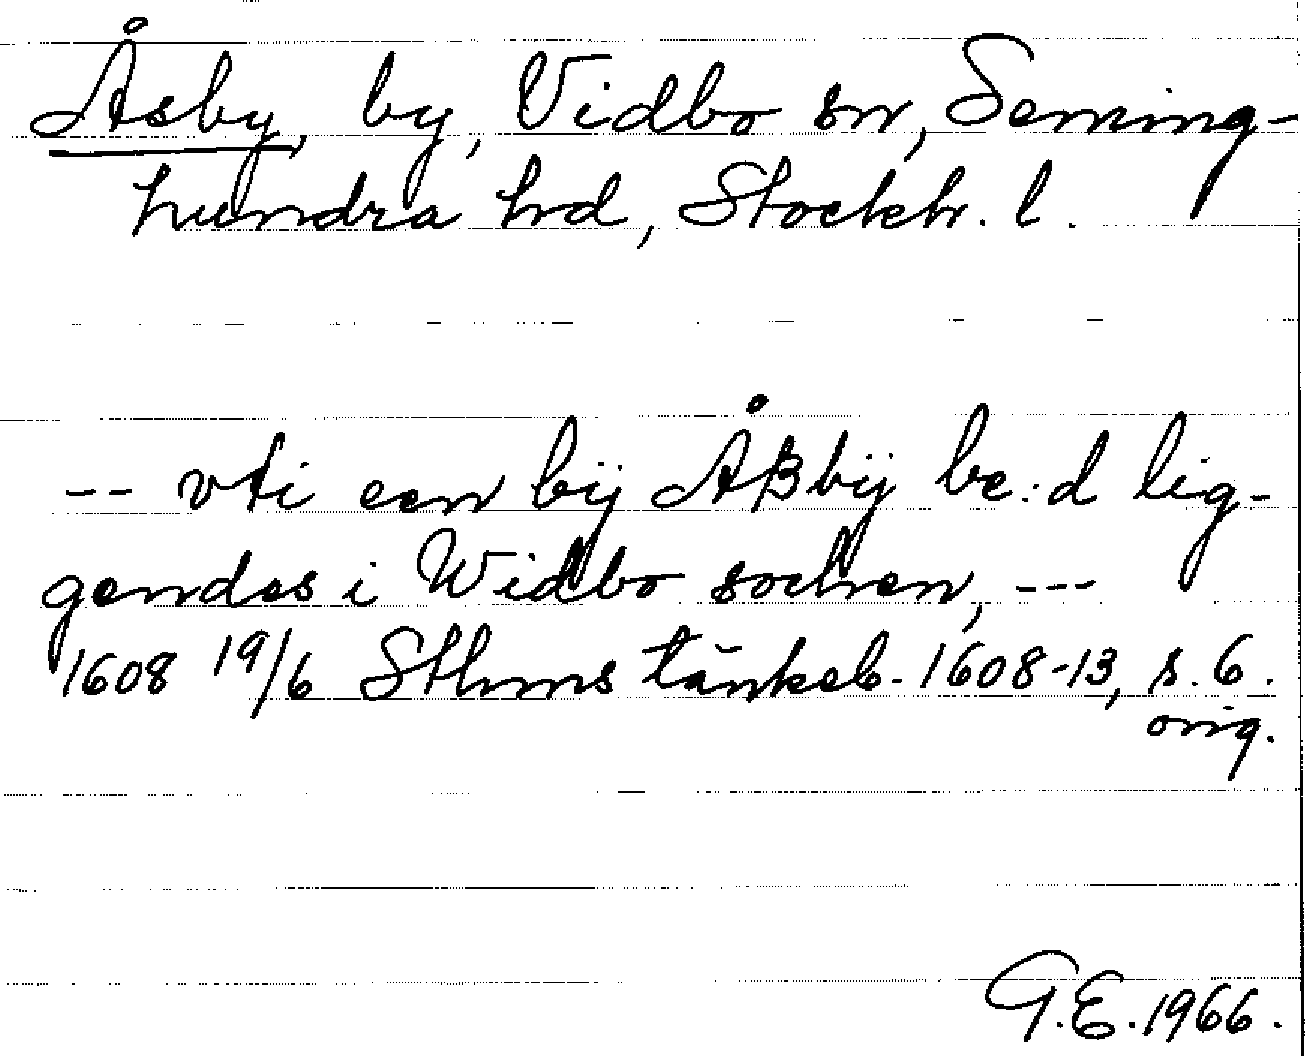 Åsby, by, Vidbo sn, Seming-
hundra hrd, Stockh. l.
-- vti een bÿ Åßbÿ be:d lig-
gendes i Widbo sochen, ---
1608 19/6 Sthms tänkeb. 1608-13, s. 6.
orig.
G.E. 1966.